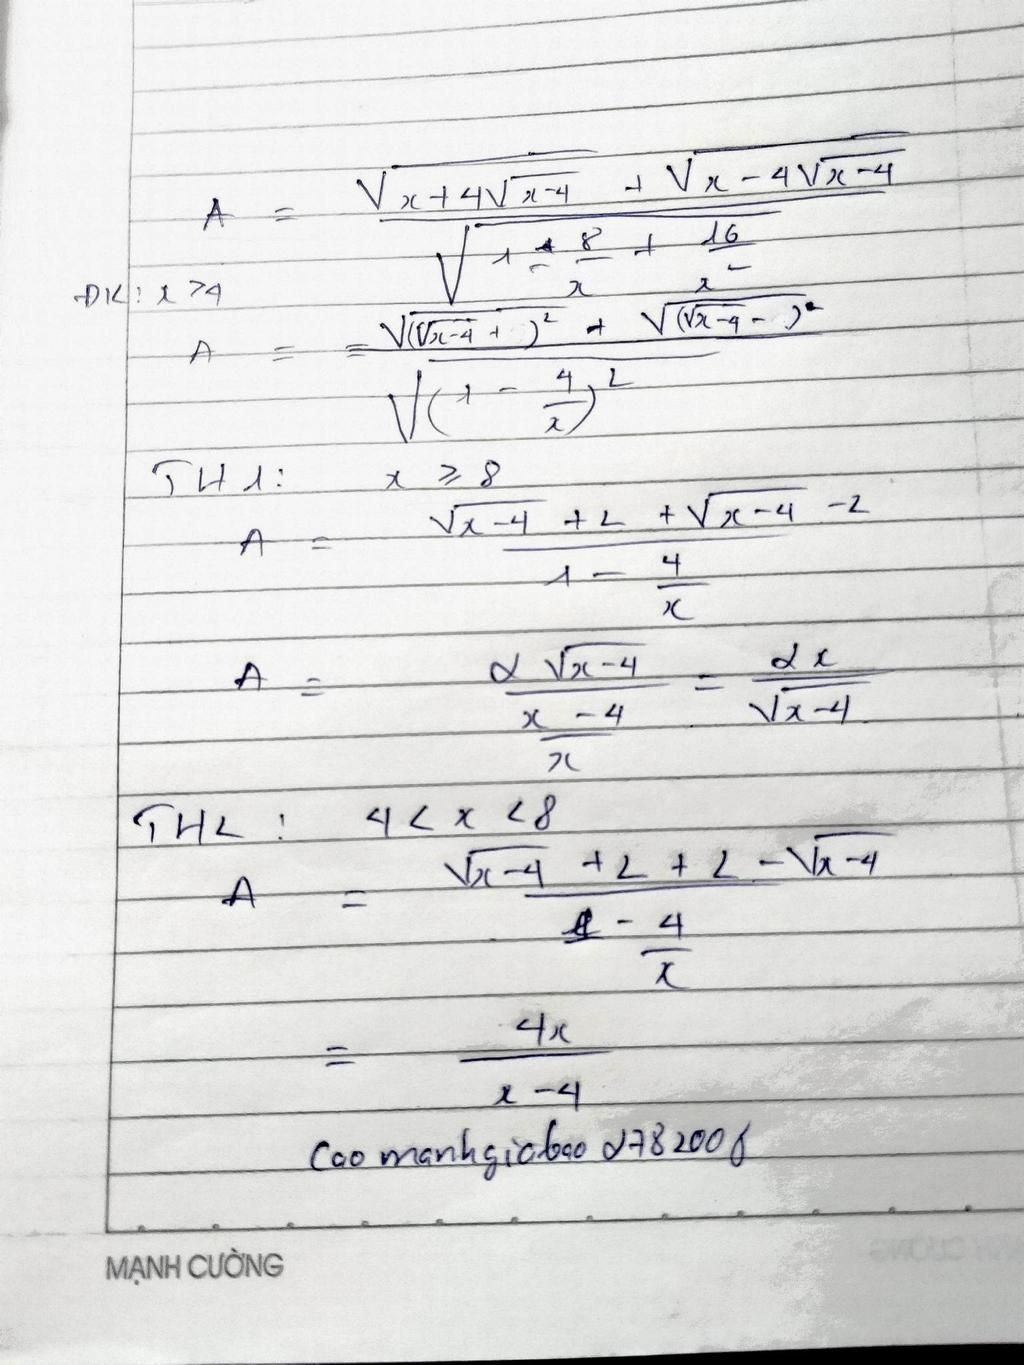 A = (√(x+4√(x-4)) + √(x-4√(x-4))) / √(1 - 8/x + 16/x²)
ĐK: x>4
A = = (√((√(x-4) + )²) + √((√(x-4) - )²)) / √((1 - 4/x)²)
TH1: x ⩾ 8
A = (√(x-4) +2 +√(x-4) -2) / (1 - 4/x)
A = 2√(x-4) / ((x-4)/x) = 2x / √(x-4)
TH2: 4 < x < 8
A = (√(x-4) +2 + 2 -√(x-4)) / (1 - 4/x)
= 4x / (x-4)
Cao manh gia bao 278200
MẠNH CƯỜNG